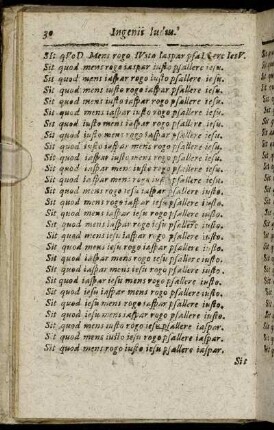 30 Ingenii lusus.
Sit qVoD Mens rogo IVsto Iaspar psallere IesV.
Sit quod mens rogo iaspar iusto psallere iesu.
Sit quod mens iaspar rogo iusto psallere iesu.
Sit quod mens iusto rogo iaspar psallere iesu.
Sit quod iusto mens rogo iaspar psallere iesu.
Sit quod iusto mens iaspar rogo psallere iesu.
Sit quod iusto iaspar mens rogo psallere iesu.
Sit quod iaspar iusto mens rogo psallere iesu.
Sit quod iaspar mens iusto rogo psallere iesu.
Sit quod iaspar mens rogo iusto psallere iesu.
Sit quod mens rogo iesu iaspar psallere iusto.
Sit quod mens rogo iaspar iesu psallere iusto.
Sit quod mens iaspar iesu rogo psallere iusto.
Sit quod mens iaspar rogo iesu psallere iusto.
Sit quod mens iesu rogo iaspar psallere iusto.
Sit quod mens iesu iaspar rogo psallere iusto.
Sit quod iaspar iesu mens rogo psallere iusto.
Sit quod iaspar mens iesu rogo psallere iusto.
Sit quod iaspar iesu mens rogo psallere iusto.
Sit quod iesu iaspar mens rogo psallere iusto.
Sit quod iesu mens rogo iaspar psallere iusto.
Sit quod iesu mens iaspar rogo psallere iusto.
Sit quod mens iusto rogo iesu psallere iaspar.
Sit quod mens iusto iesu rogo psallere iaspar.
Sit quod mens rogo iusto iesu psallere iaspar.
Sit